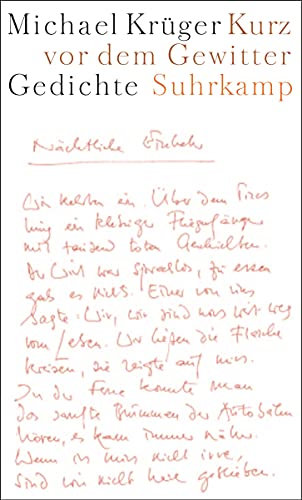 Michael Krüger Kurz
vor dem Gewitter
Gedichte Suhrkamp
Nächtliche Einkehr
Wir kehrten ein. Über dem Tresen
hing ein klebriger Fliegenfänger
mit tausend toten Geschichten.
Der Wirt war sprachlos, zu essen
gab es nichts. Einer von uns
sagte: Wir, wir sind weit weg
vom Leben. Wir ließen die Flasche
kreisen, sie zeigte auf mich.
In der Ferne konnte man
das sanfte Brummen der Autobahn
hören, es kam immer näher.
Wenn ich mich nicht irre,
sind wir nicht lange geblieben.